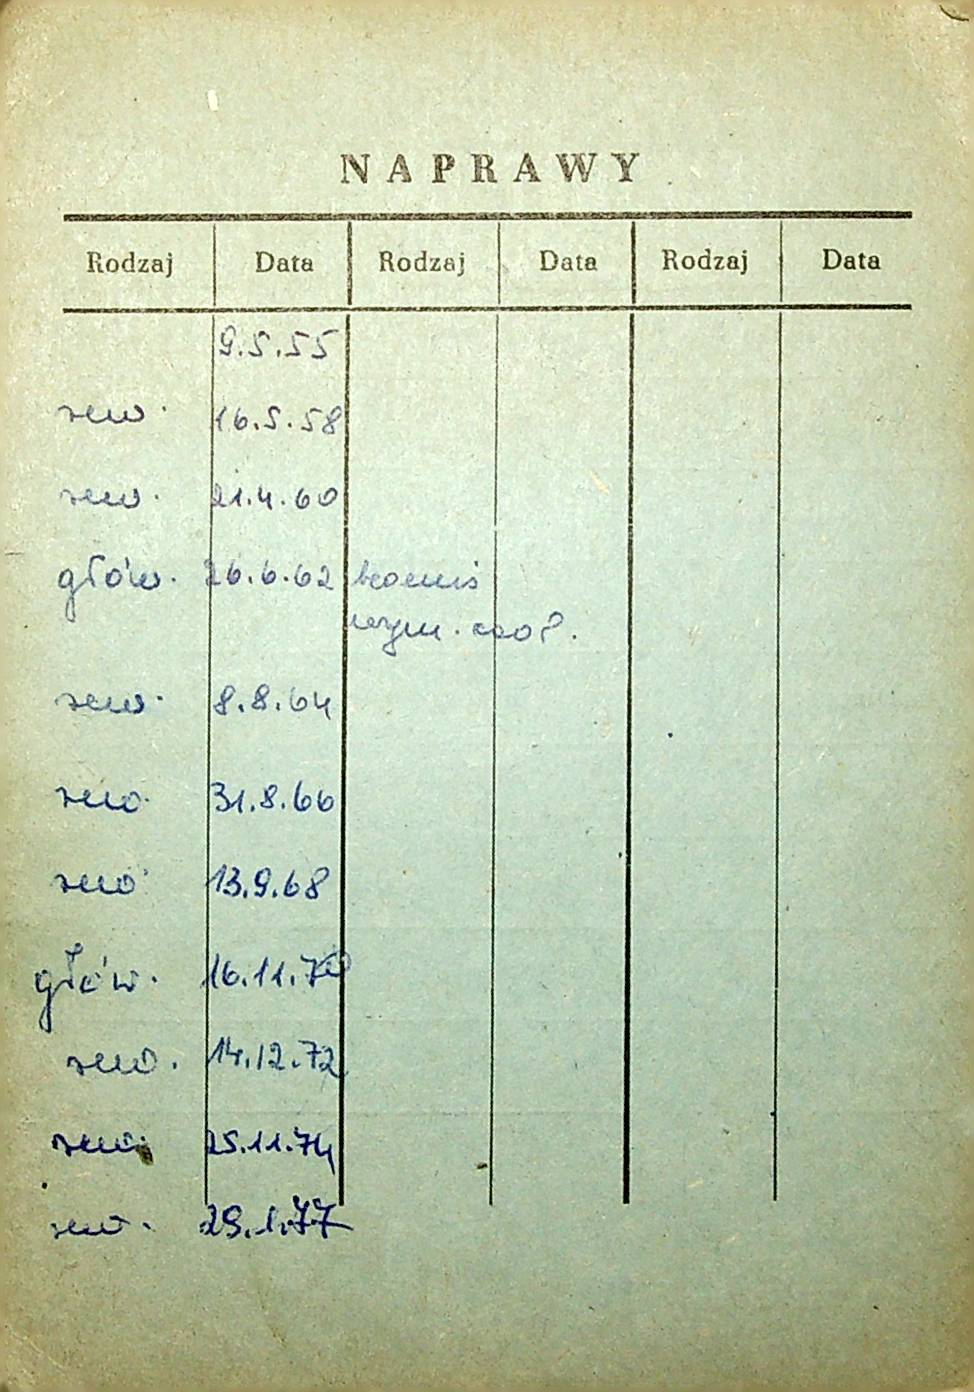 NAPRAWY
Rodzaj Data Rodzaj Data Rodzaj Data
9.5.55
rew. 16.5.58
rew. 21.4.60
głów. 26.6.62
wym.
rew. 8.8.64
rew. 31.8.66
rew. 13.9.68
głów. 16.11.70
rew. 14.12.72
rew. 25.11.74
rew. 29.1.77